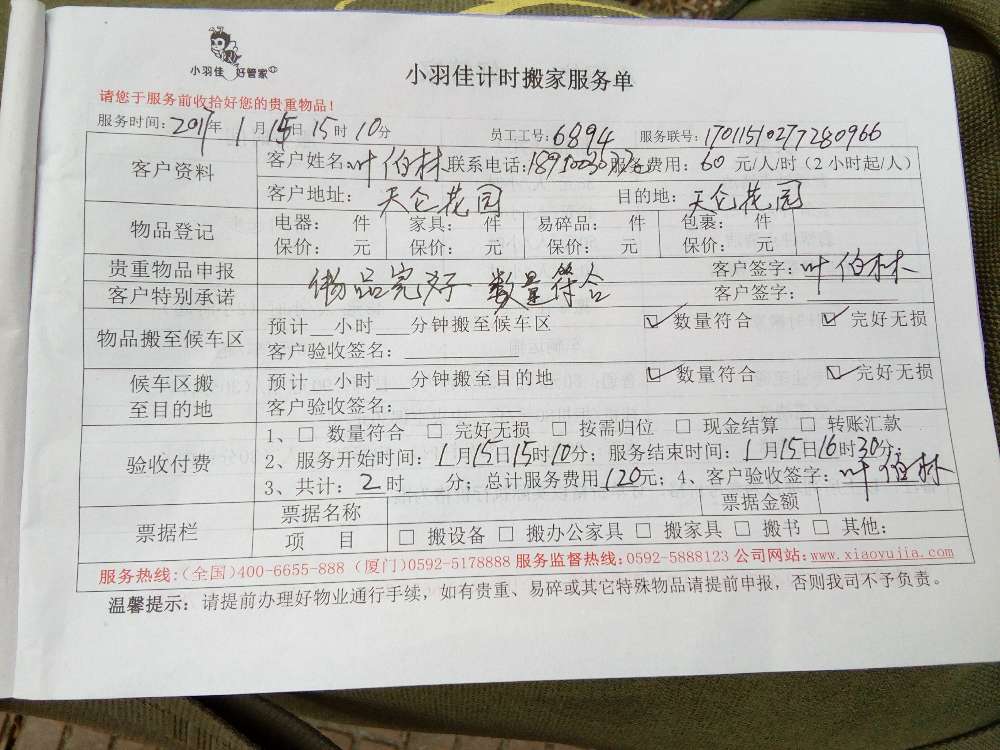 小羽佳 好管家
小羽佳计时搬家服务单
请您于服务前收拾好您的贵重物品！
服务时间：2017年 1月15日15时10分 员工工号：6894 服务联号：17011510277280966
客户资料 客户姓名：叶伯林 联系电话： 服务费用：60 元/人/时（2小时起/人）
客户地址：天仑花园 目的地：天仑花园
物品登记 电器： 件 家具： 件 易碎品： 件 包裹： 件
保价： 元 保价： 元 保价： 元 保价： 元
贵重物品申报 物品完好 数量符合 客户签字：叶伯林
客户特别承诺 客户签字：
物品搬至候车区 预计__小时___分钟搬至候车区 ☑数量符合 ☑完好无损
客户验收签名：
候车区搬 预计__小时___分钟搬至目的地 ☑数量符合 ☑完好无损
至目的地 客户验收签名：
1、□ 数量符合 □ 完好无损 □ 按需归位 □ 现金结算 □ 转账汇款
验收付费 2、服务开始时间：1月15日15时10分；服务结束时间：1月15日16时30分；
3、共计：2时___分；总计服务费用120元；4、客户验收签字：叶伯林
票据栏 票据名称 票据金额
项 目 □ 搬设备 □ 搬办公家具 □ 搬家具 □ 搬书 □ 其他：
服务热线：(全国)400-6655-888 (厦门)0592-5178888 服务监督热线：0592-5888123 公司网站：www.xiaoyujia.com
温馨提示：请提前办理好物业通行手续，如有贵重、易碎或其它特殊物品请提前申报，否则我司不予负责。